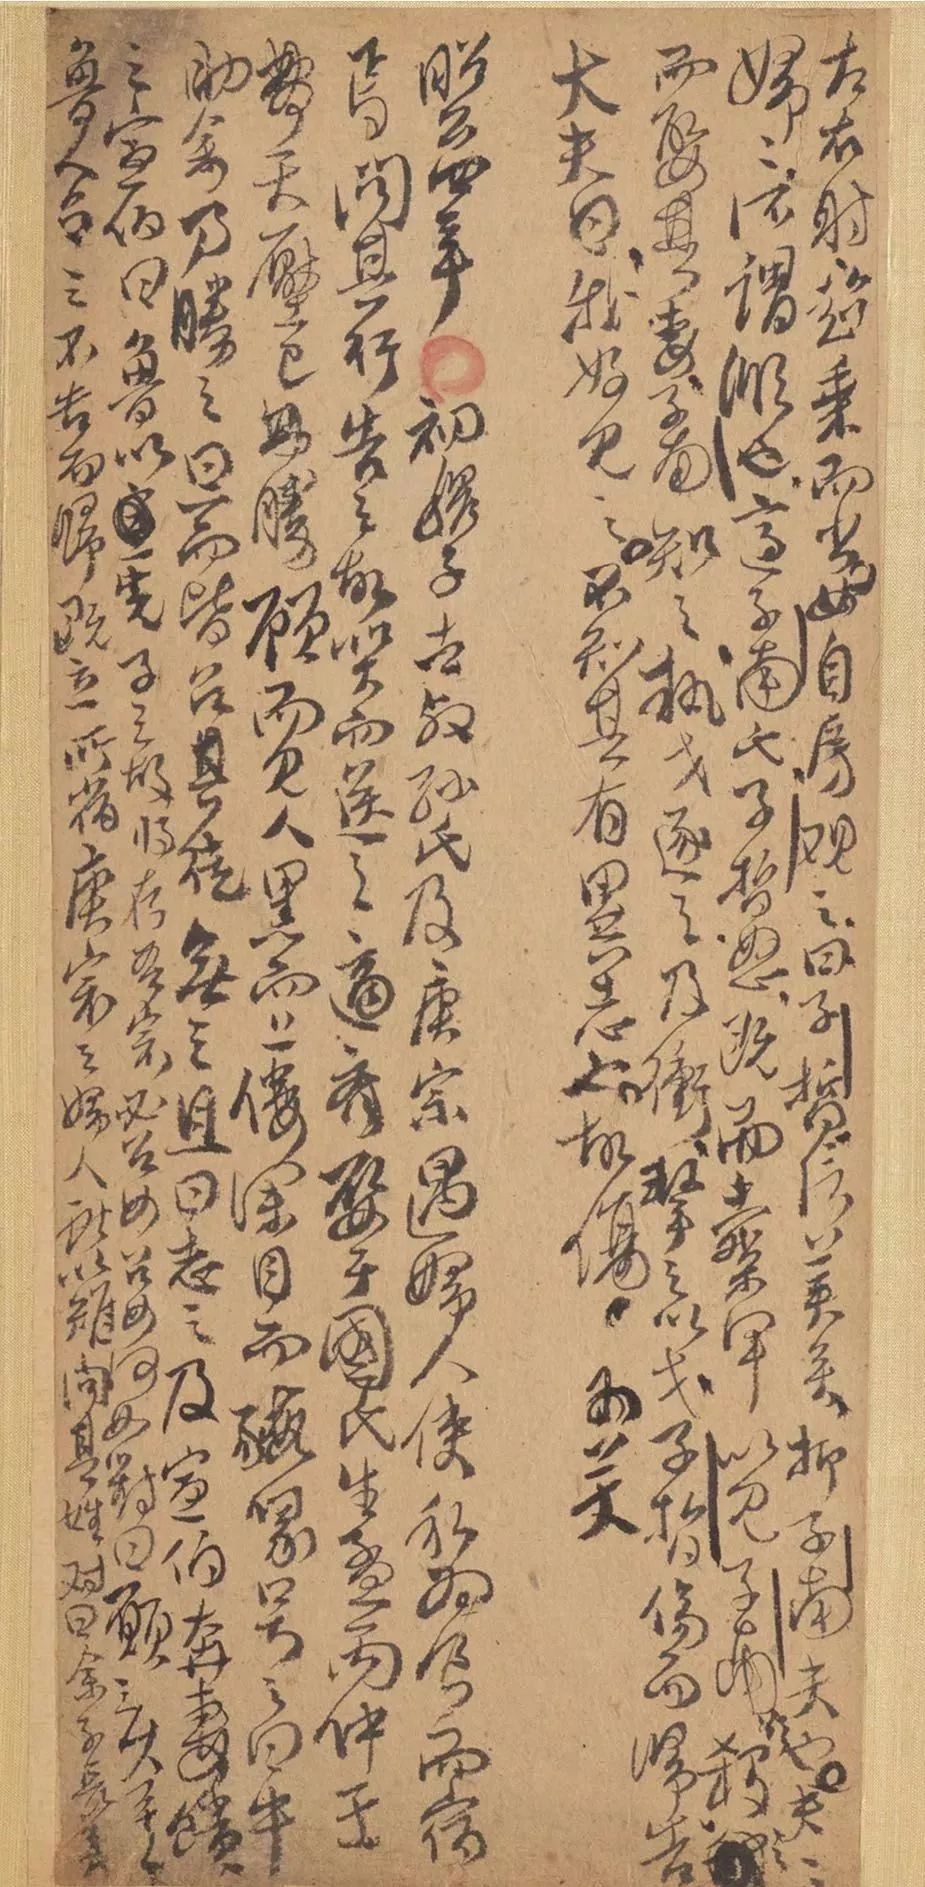 左右射超乘而出女自房观之曰子皙信美矣抑子南夫也夫〻
婦〻所謂順也適子南氏子皙怒既而櫜甲以見子南欲殺之
而娶其妻子南知之執戈逐之及衝擊之以戈子皙傷而歸告
大夫曰我好見之不知其有異志也故傷
昭公四年 初穆子去叔孫氏及庚宗遇婦人使私為食而宿
焉問其行告之故哭而送之適齊娶于國氏生孟丙仲壬
夢天壓己弗勝顧而見人黑而上僂深目而豭喙号之曰牛
助余乃勝之旦而皆召其徒無之且曰志之及宣伯奔齊饋
之宣伯曰魯以先子之故將存吾宗必召女召女何如對曰願之久矣
魯人召之不告而歸既立所宿庚宗之婦人獻以雉問其姓对曰余子長矣